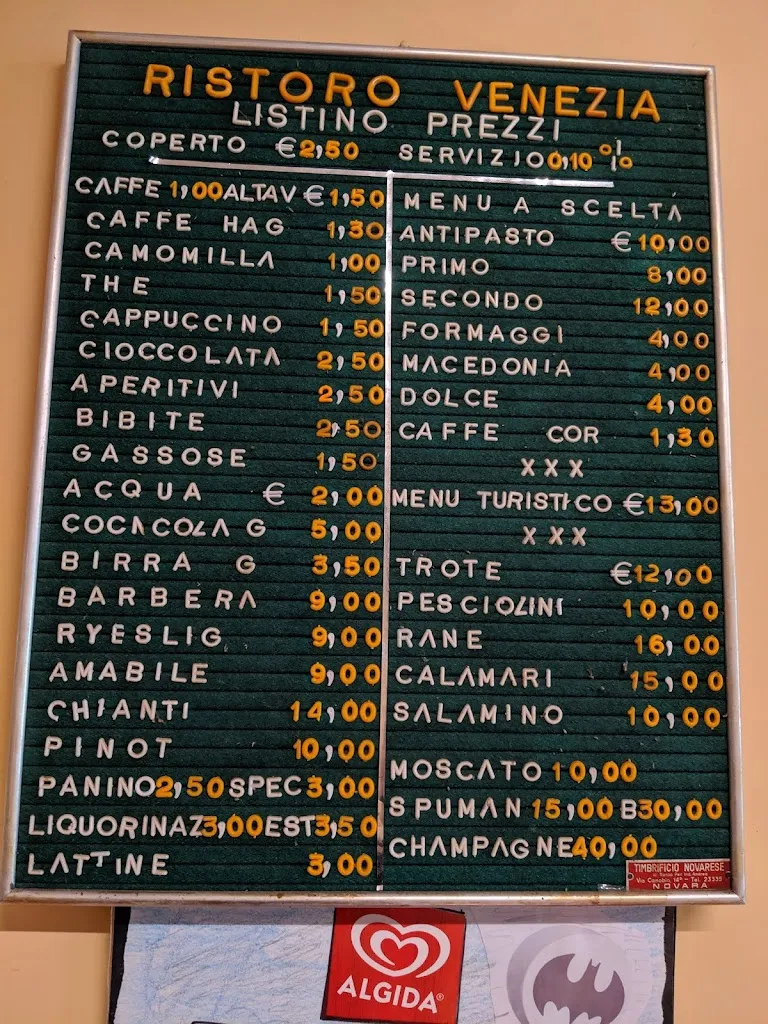 RISTORO VENEZIA
LISTINO PREZZI
COPERTO €2,50 SERVIZIO 0,10 %
CAFFE 1,00 ALTAV € 1,50
CAFFE HAG 1,30
CAMOMILLA 1,00
THE 1,50
CAPPUCCINO 1,50
CIOCCOLATA 2,50
APERITIVI 2,50
BIBITE 2,50
GASSOSE 1,50
ACQUA € 2,00
COCACOLA G 5,00
BIRRA G 3,50
BARBERA 9,00
RYESLIG 9,00
AMABILE 9,00
CHIANTI 14,00
PINOT 10,00
PANINO 2,50 SPEC 3,00
LIQUORI NAZ 3,00 EST 3,50
LATTINE 3,00
MENU A SCELTA
ANTIPASTO € 10,00
PRIMO 8,00
SECONDO 12,00
FORMAGGI 4,00
MACEDONIA 4,00
DOLCE 4,00
CAFFE COR 1,30
XXX
MENU TURISTICO €13,00
XXX
TROTE €12,00
PESCIOLINI 10,00
RANE 16,00
CALAMARI 15,00
SALAMINO 10,00
MOSCATO 10,00
SPUMAN 15,00 B30,00
CHAMPAGNE 40,00
TIMBRIFICIO NOVARESE
Via Canobio, 14 - Tel. 23335
NOVARA
ALGIDA®